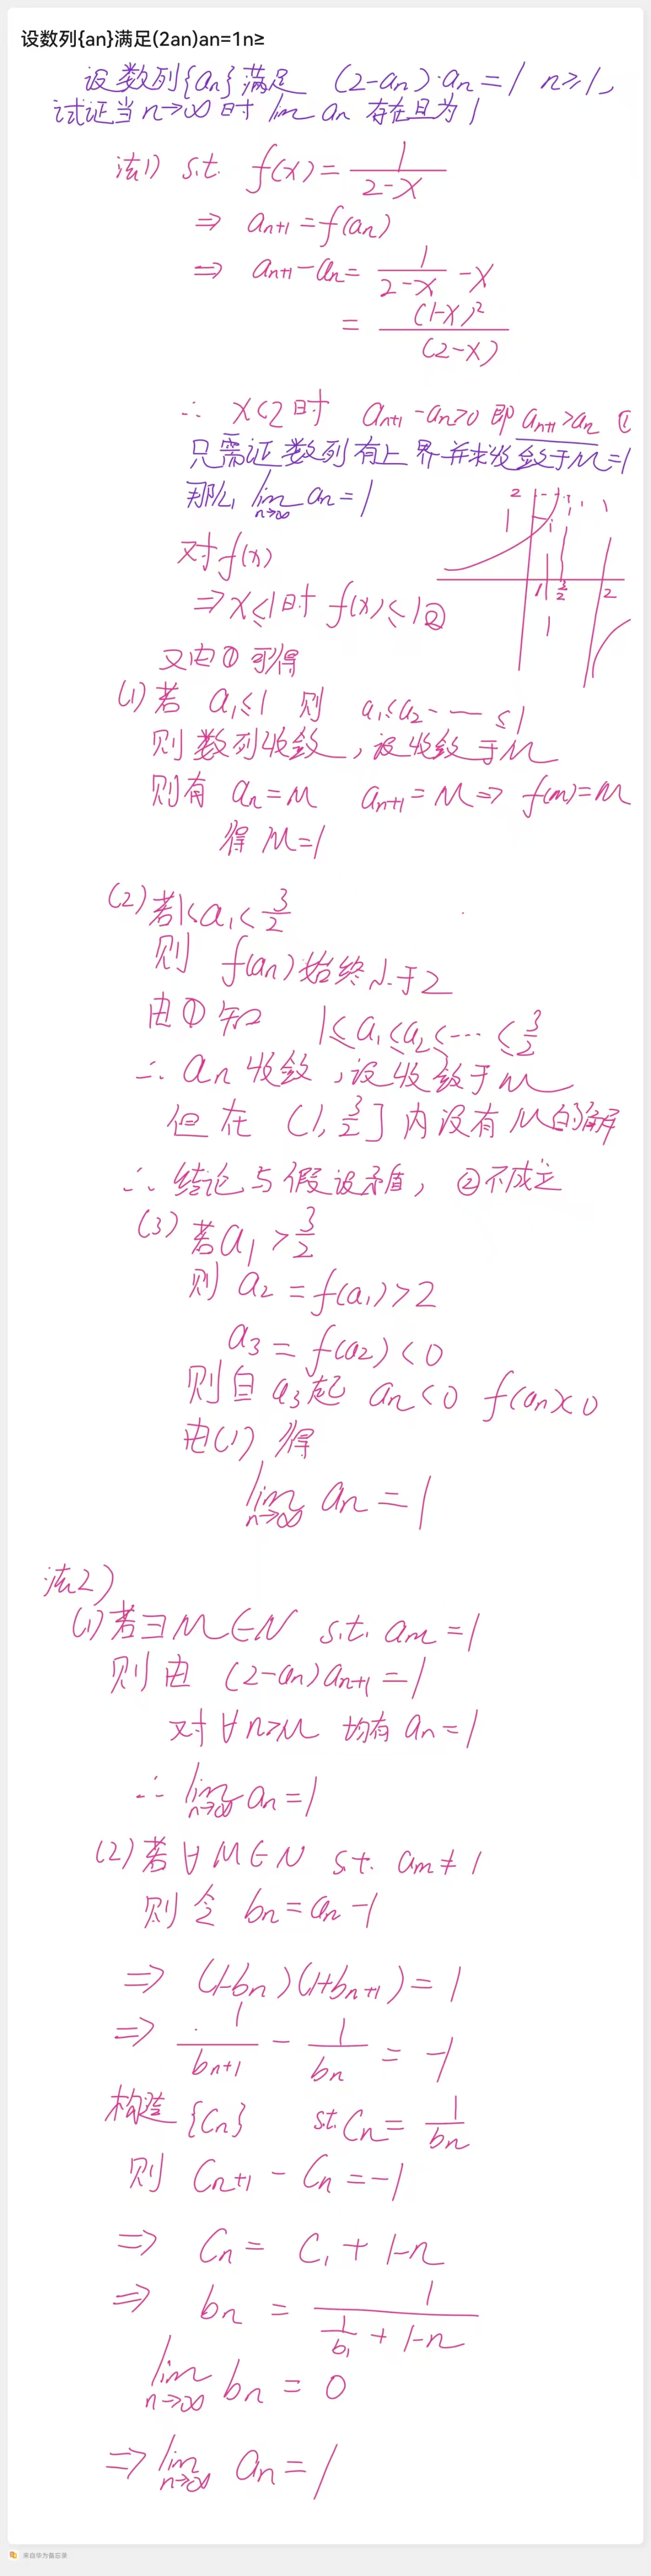 设数列{an}满足(2an)an=1n≥
设数列{an}满足 (2-an)·an=1 n≥1,
试证当n→∞时 lim an 存在且为1
法1) s.t. f(x)=1/(2-x)
⇒ an+1=f(an)
⇒ an+1-an=1/(2-x)-x
=(1-x)²/(2-x)
∴ x<2时 an+1-an>0 即 an+1>an ①
只需证数列有上界并求收敛于M=1
那么 lim n→∞ an=1
对f(x)
⇒x≤1时 f(x)≤1②
2
1 3/2 2
又由①可得
(1)若 a1≤1 则 a1≤a2--—≤1
则数列收敛,设收敛于M
则有 an=M an+1=M⇒ f(m)=M
得 M=1
(2)若1<a1<3/2
则 f(an)始终小于2
由①知 1≤a1≤a2≤…<3/2
∴ an收敛,设收敛于M
但在 (1,3/2]内没有M的解
∴ 结论与假设矛盾, ②不成立
(3) 若a1>3/2
则 a2=f(a1)>2
a3=f(a2)<0
则自a3起 an<0 f(an)<0
由(1)得
lim n→∞ an=1
法2)
(1)若∃M∈N s.t. am=1
则由 (2-an)an+1=1
对∀n>M 均有 an=1
∴ lim n→∞ an=1
(2)若∀M∈N s.t. am≠1
则令 bn=an-1
⇒ (1-bn)(1+bn+1)=1
⇒ 1/bn+1 - 1/bn = -1
构造{Cn} s.t. Cn=1/bn
则 Cn+1-Cn=-1
⇒ Cn=C1+1-n
⇒ bn=1/(1/b1+1-n)
lim n→∞ bn=0
⇒ lim n→∞ an=1
来自华为备忘录